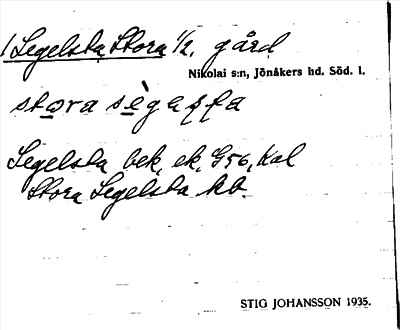 1 Segelsta, Stora 1/2, gård
Nikolai s:n, Jönåkers hd. Söd. l.
stora
Segelsta bek, ek, G56, Kal
Stora Segelsta kb.
STIG JOHANSSON 1935.